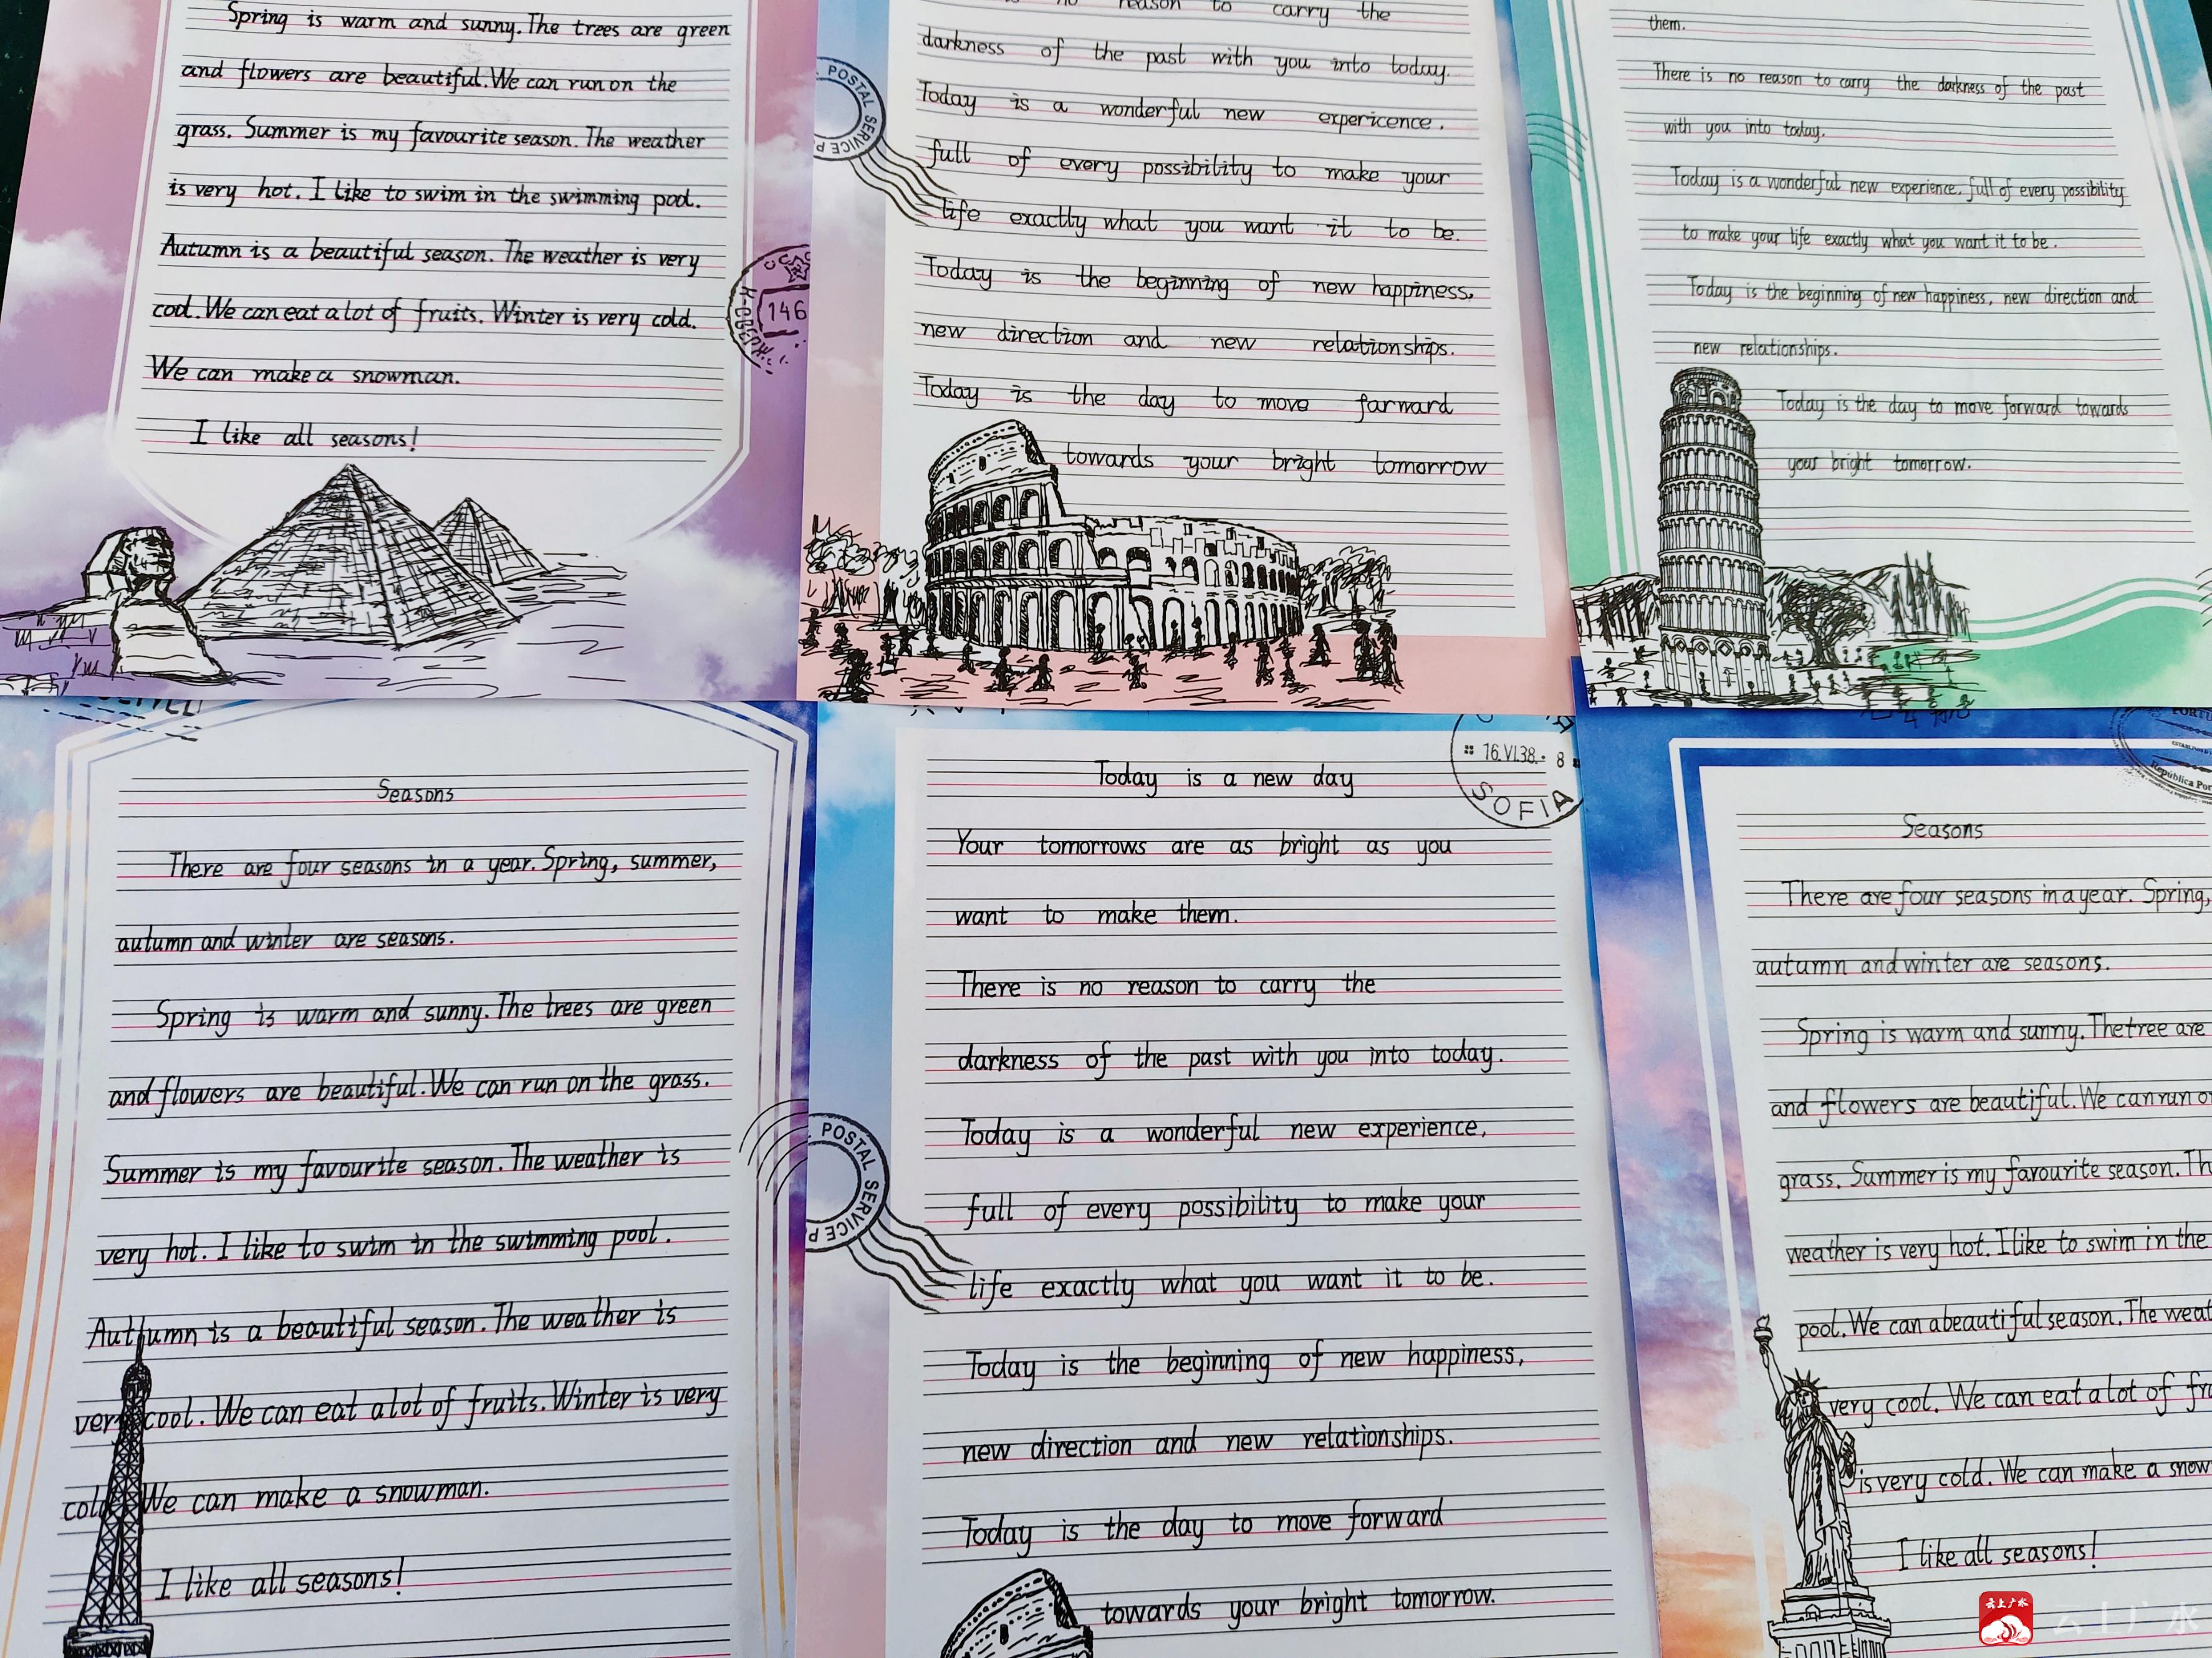 Spring is warm and sunny. The trees are green
and flowers are beautiful. We can run on the
grass. Summer is my favourite season. The weather
is very hot. I like to swim in the swimming pool.
Autumn is a beautiful season. The weather is very
cool. We can eat a lot of fruits. Winter is very cold.
We can make a snowman.
I like all seasons!
146
no reason to carry the
darkness of the past with you into today.
Today is a wonderful new expericence.
full of every possibility to make your
life exactly what you want it to be.
Today is the beginning of new happiness,
new direction and new relationships.
Today is the day to move farward
towards your bright tomorrow
POSTAL SERVICE P
them.
There is no reason to carry the darkness of the past
with you into today.
Today is a wonderful new experience. full of every possibility
to make your life exactly what you want it to be.
Today is the beginning of new happiness, new direction and
new relationships.
Today is the day to move forward towards
your bright tomorrow.
Seasons
There are four seasons in a year. Spring, summer,
autumn and winter are seasons.
Spring is warm and sunny. The trees are green
and flowers are beautiful. We can run on the grass.
Summer is my favourite season. The weather is
very hot. I like to swim in the swimming pool.
Autumn is a beautiful season. The weather is
very cool. We can eat a lot of fruits. Winter is very
cold. We can make a snowman.
I like all seasons!
Today is a new day
Your tomorrows are as bright as you
want to make them.
There is no reason to carry the
darkness of the past with you into today.
Today is a wonderful new experience,
full of every possibility to make your
life exactly what you want it to be.
Today is the beginning of new happiness,
new direction and new relationships.
Today is the day to move forward
towards your bright tomorrow.
16.VI.38. 8
SOFIA
POSTAL SERVICE P
Seasons
There are four seasons in a year. Spring,
autumn and winter are seasons.
Spring is warm and sunny. The tree are
and flowers are beautiful. We can run
grass. Summer is my favourite season.
weather is very hot. I like to swim in the
pool. We can a beautiful season. The
very cool. We can eat a lot of
is very cold. We can make a snow
I like all seasons!
República
云上广水
云上广水